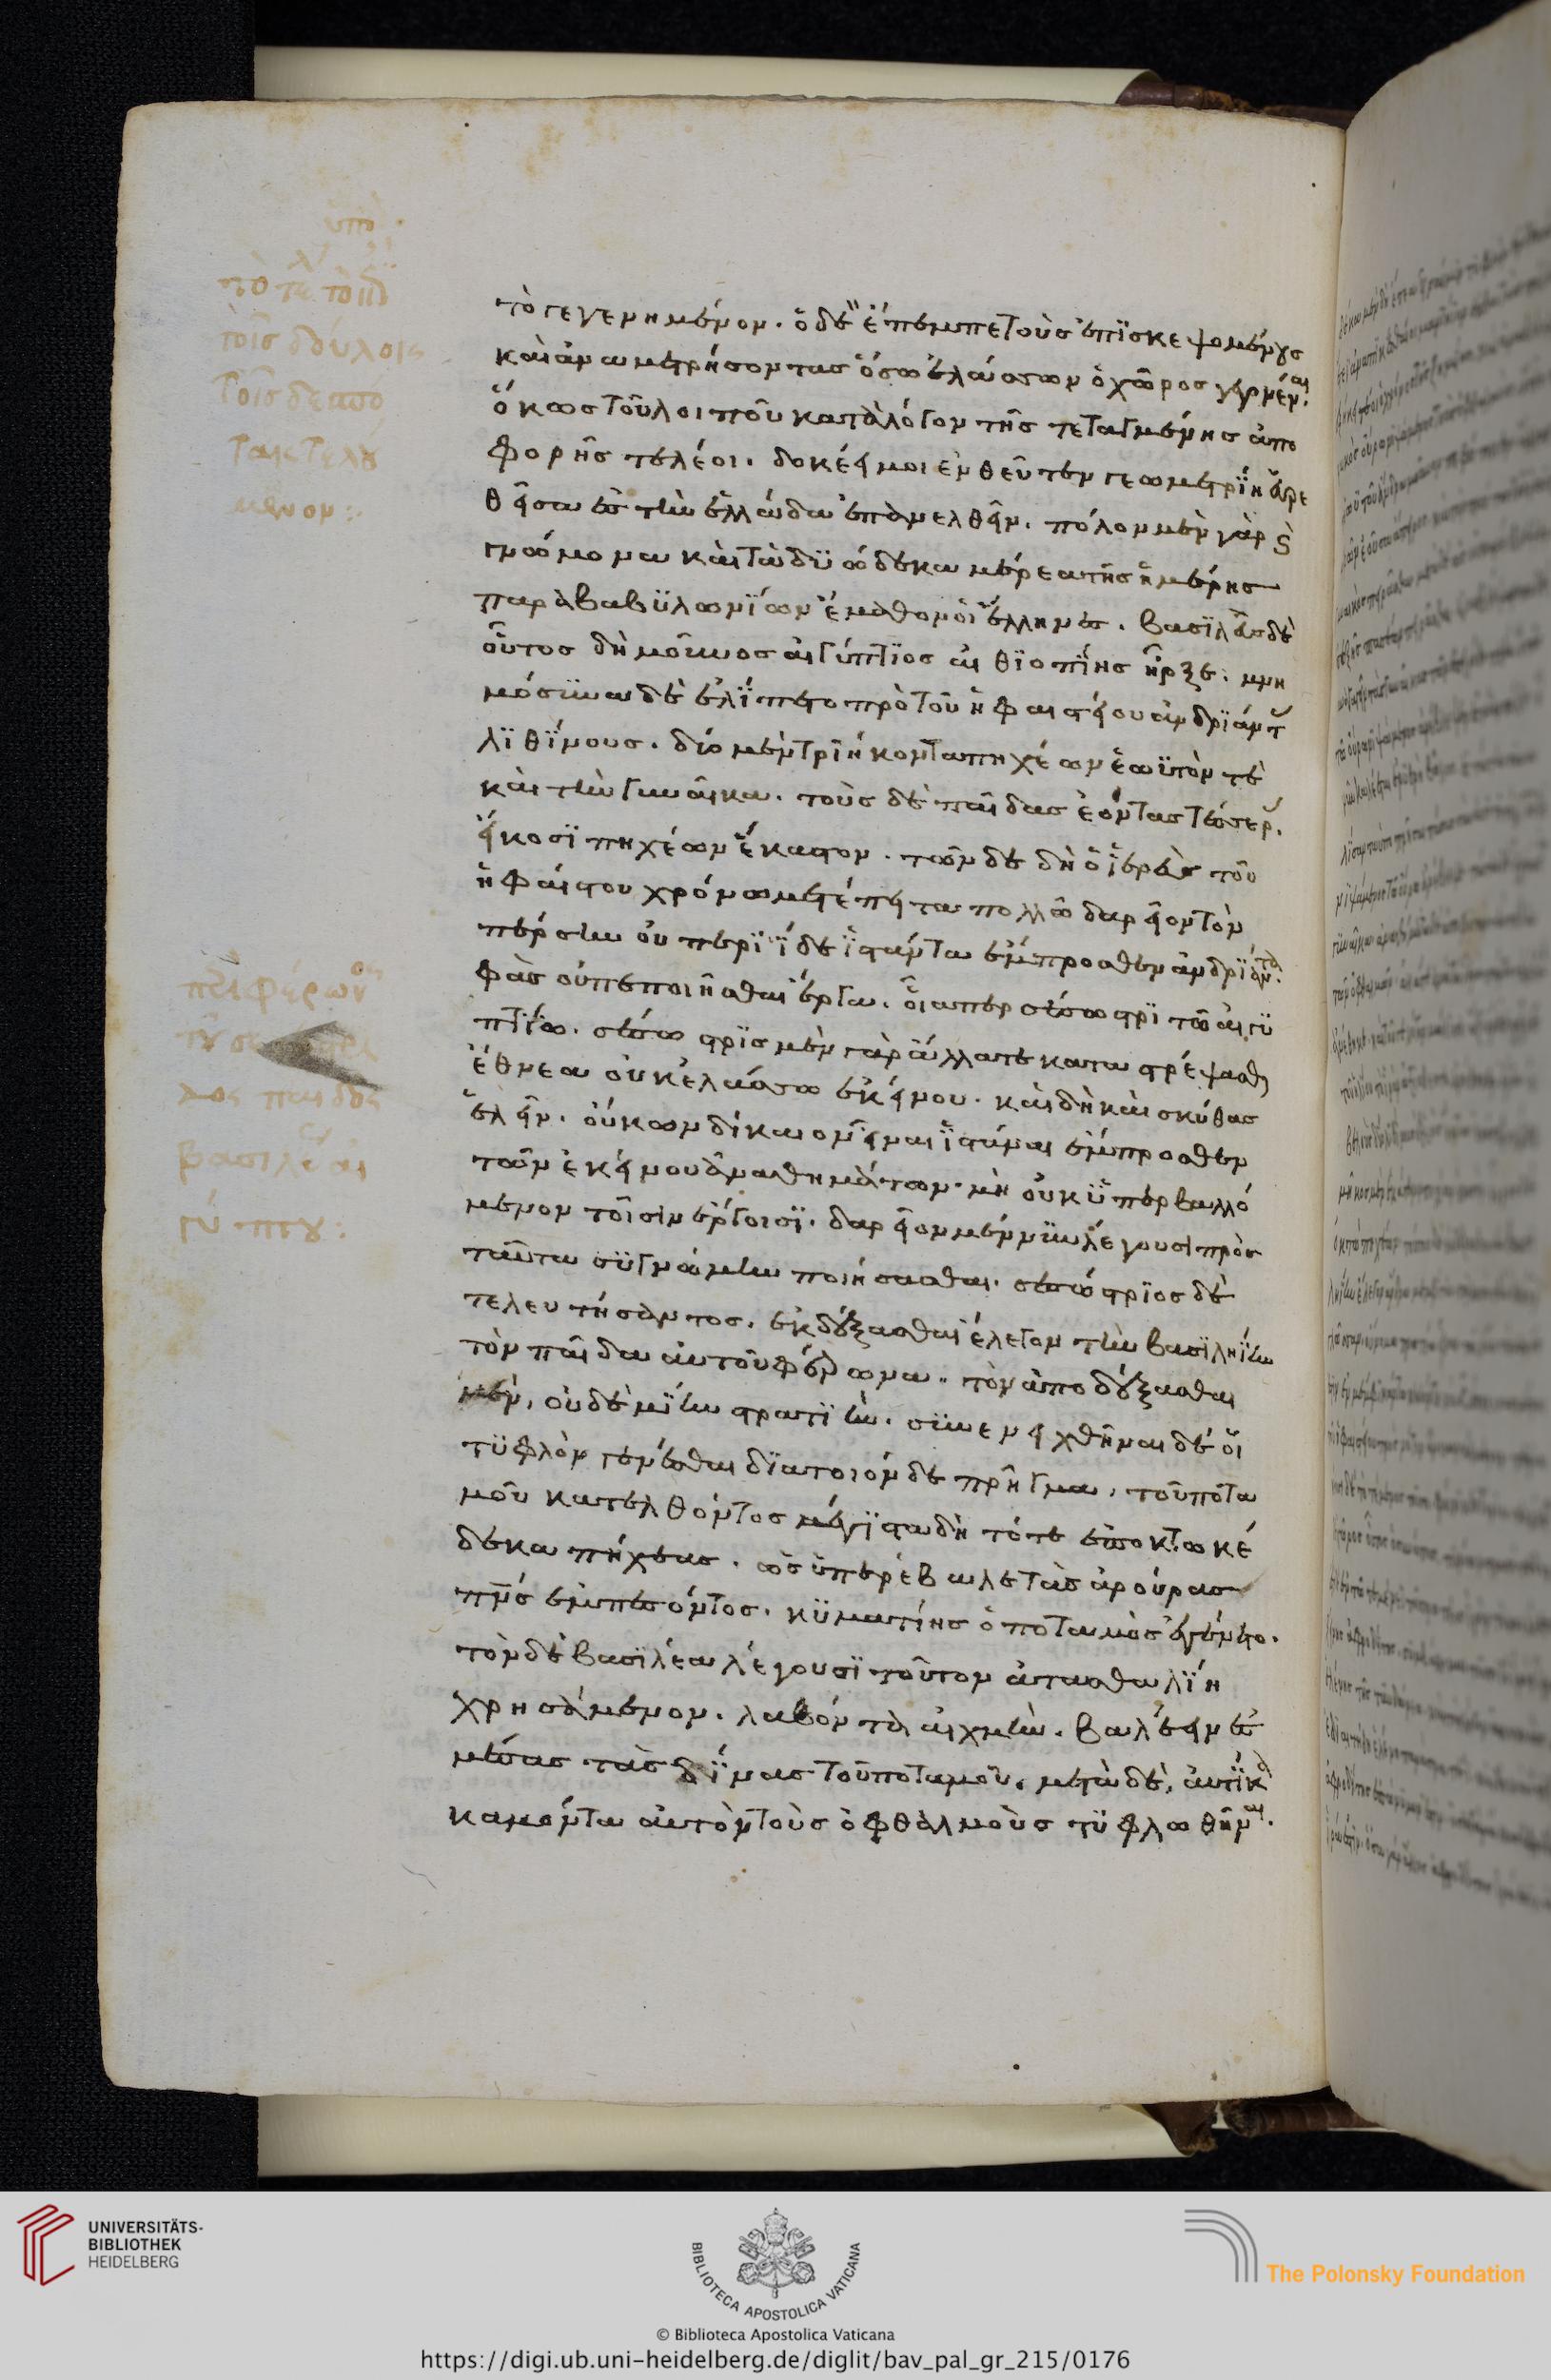 τὸ γεγενημένον. ὁ δὲ ἔπεμπε τοὺς ἐπισκεψομένους
καὶ ἀναμετρήσοντας ὅσω ἐλάσσων ὁ χῶρος γέγονεν.
ὅκως τοῦ λοιποῦ κατὰ λόγον τῆς τεταγμένης ἀπο
φορῆς τελέοι. δοκέει μοι ἐνθεῦτεν γεωμετρίη εὑρε
θεῖσα ἐς τὴν ἑλλάδα ἐπανελθεῖν. πόλον μὲν γὰρ καὶ
γνώμονα καὶ τὰ δυώδεκα μέρεα τῆς ἡμέρης
παρὰ βαβυλωνίων ἔμαθον οἱ ἕλληνες. βασιλεὺς δὲ
οὗτος δὴ μοῦνος αἰγύπτιος αἰθιοπίης ἦρξε. μνη
μόσυνα δὲ ἐλίπετο πρὸ τοῦ ἡφαιστείου ἀνδριάντας
λιθίνους. δύο μὲν τριήκοντα πηχέων ἑωυτόν τε
καὶ τὴν γυναῖκα. τοὺς δὲ παῖδας ἐόντας τέσσερας
εἴκοσι πηχέων ἕκαστον. τῶν δὲ δὴ ὁ ἱερεὺς τοῦ
ἡφαίστου χρόνω μετέπειτα πολλῶ δαρεῖον τὸν
πέρσην οὐ περιίδε ἱστάντα ἔμπροσθεν ἀνδριάντα
φὰς οὔ πεποιῆσθαι ἔργα. οἷα περ σεσώστρι τῶ αἰγυ
πτίω. σέσωστρις μὲν γὰρ ἄλλα τε καταστρέψασθαι
ἔθνεα οὐκ ἐλάσσω ἐκείνου. καὶ δὴ καὶ σκύθας
ἑλεῖν. οὔκων δίκαιον εἶναι ἱστάναι ἔμπροσθεν
τῶν ἐκείνου ἀναθημάτων μὴ οὐκ ὑπερβαλλό
μενον τοῖσιν ἔργοισι. δαρεῖον μέν νυν λέγουσι πρὸς
ταῦτα συγγνώμην ποιήσασθαι. σεσώστριος δὲ
τελευτήσαντος. ἐκδέξασθαι ἔλεγον τὴν βασιληίην
τὸν παῖδα αὐτοῦ φερῶνα. τὸν ἀποδέξασθαι
μὲν, οὐδεμίην στρατιήν. συνενειχθῆναι δέ οἱ
τυφλὸν γενέσθαι διὰ τοιόνδε πρῆγμα, τοῦ ποτα
μοῦ κατελθόντος μέγιστα δὴ τότε ἐπ᾽ ὀκτωκαί
δεκα πήχεας. ὡς ὑπερέβαλε τὰς ἀρούρας
πνεύματος ἐμπεσόντος. κυματίης ὁ ποταμὸς ἐγένετο.
τὸν δὲ βασιλέα λέγουσι τοῦτον ἀτασθαλίη
χρησάμενον. λαβόντα αἰχμὴν. βαλέειν ἐς
μέσας τὰς δίνας τοῦ ποταμοῦ. μετὰ δὲ, αὐτίκα
καμόντα αὐτὸν τοὺς ὀφθαλμοὺς τυφλωθῆναι.
τοῖς δούλοις
βασιλέως αἰ
γύπτου:
UNIVERSITÄTS-
BIBLIOTHEK
HEIDELBERG
BIBLIOTECA APOSTOLICA VATICANA
The Polonsky Foundation
© Biblioteca Apostolica Vaticana
https://digi.ub.uni-heidelberg.de/diglit/bav_pal_gr_215/0176